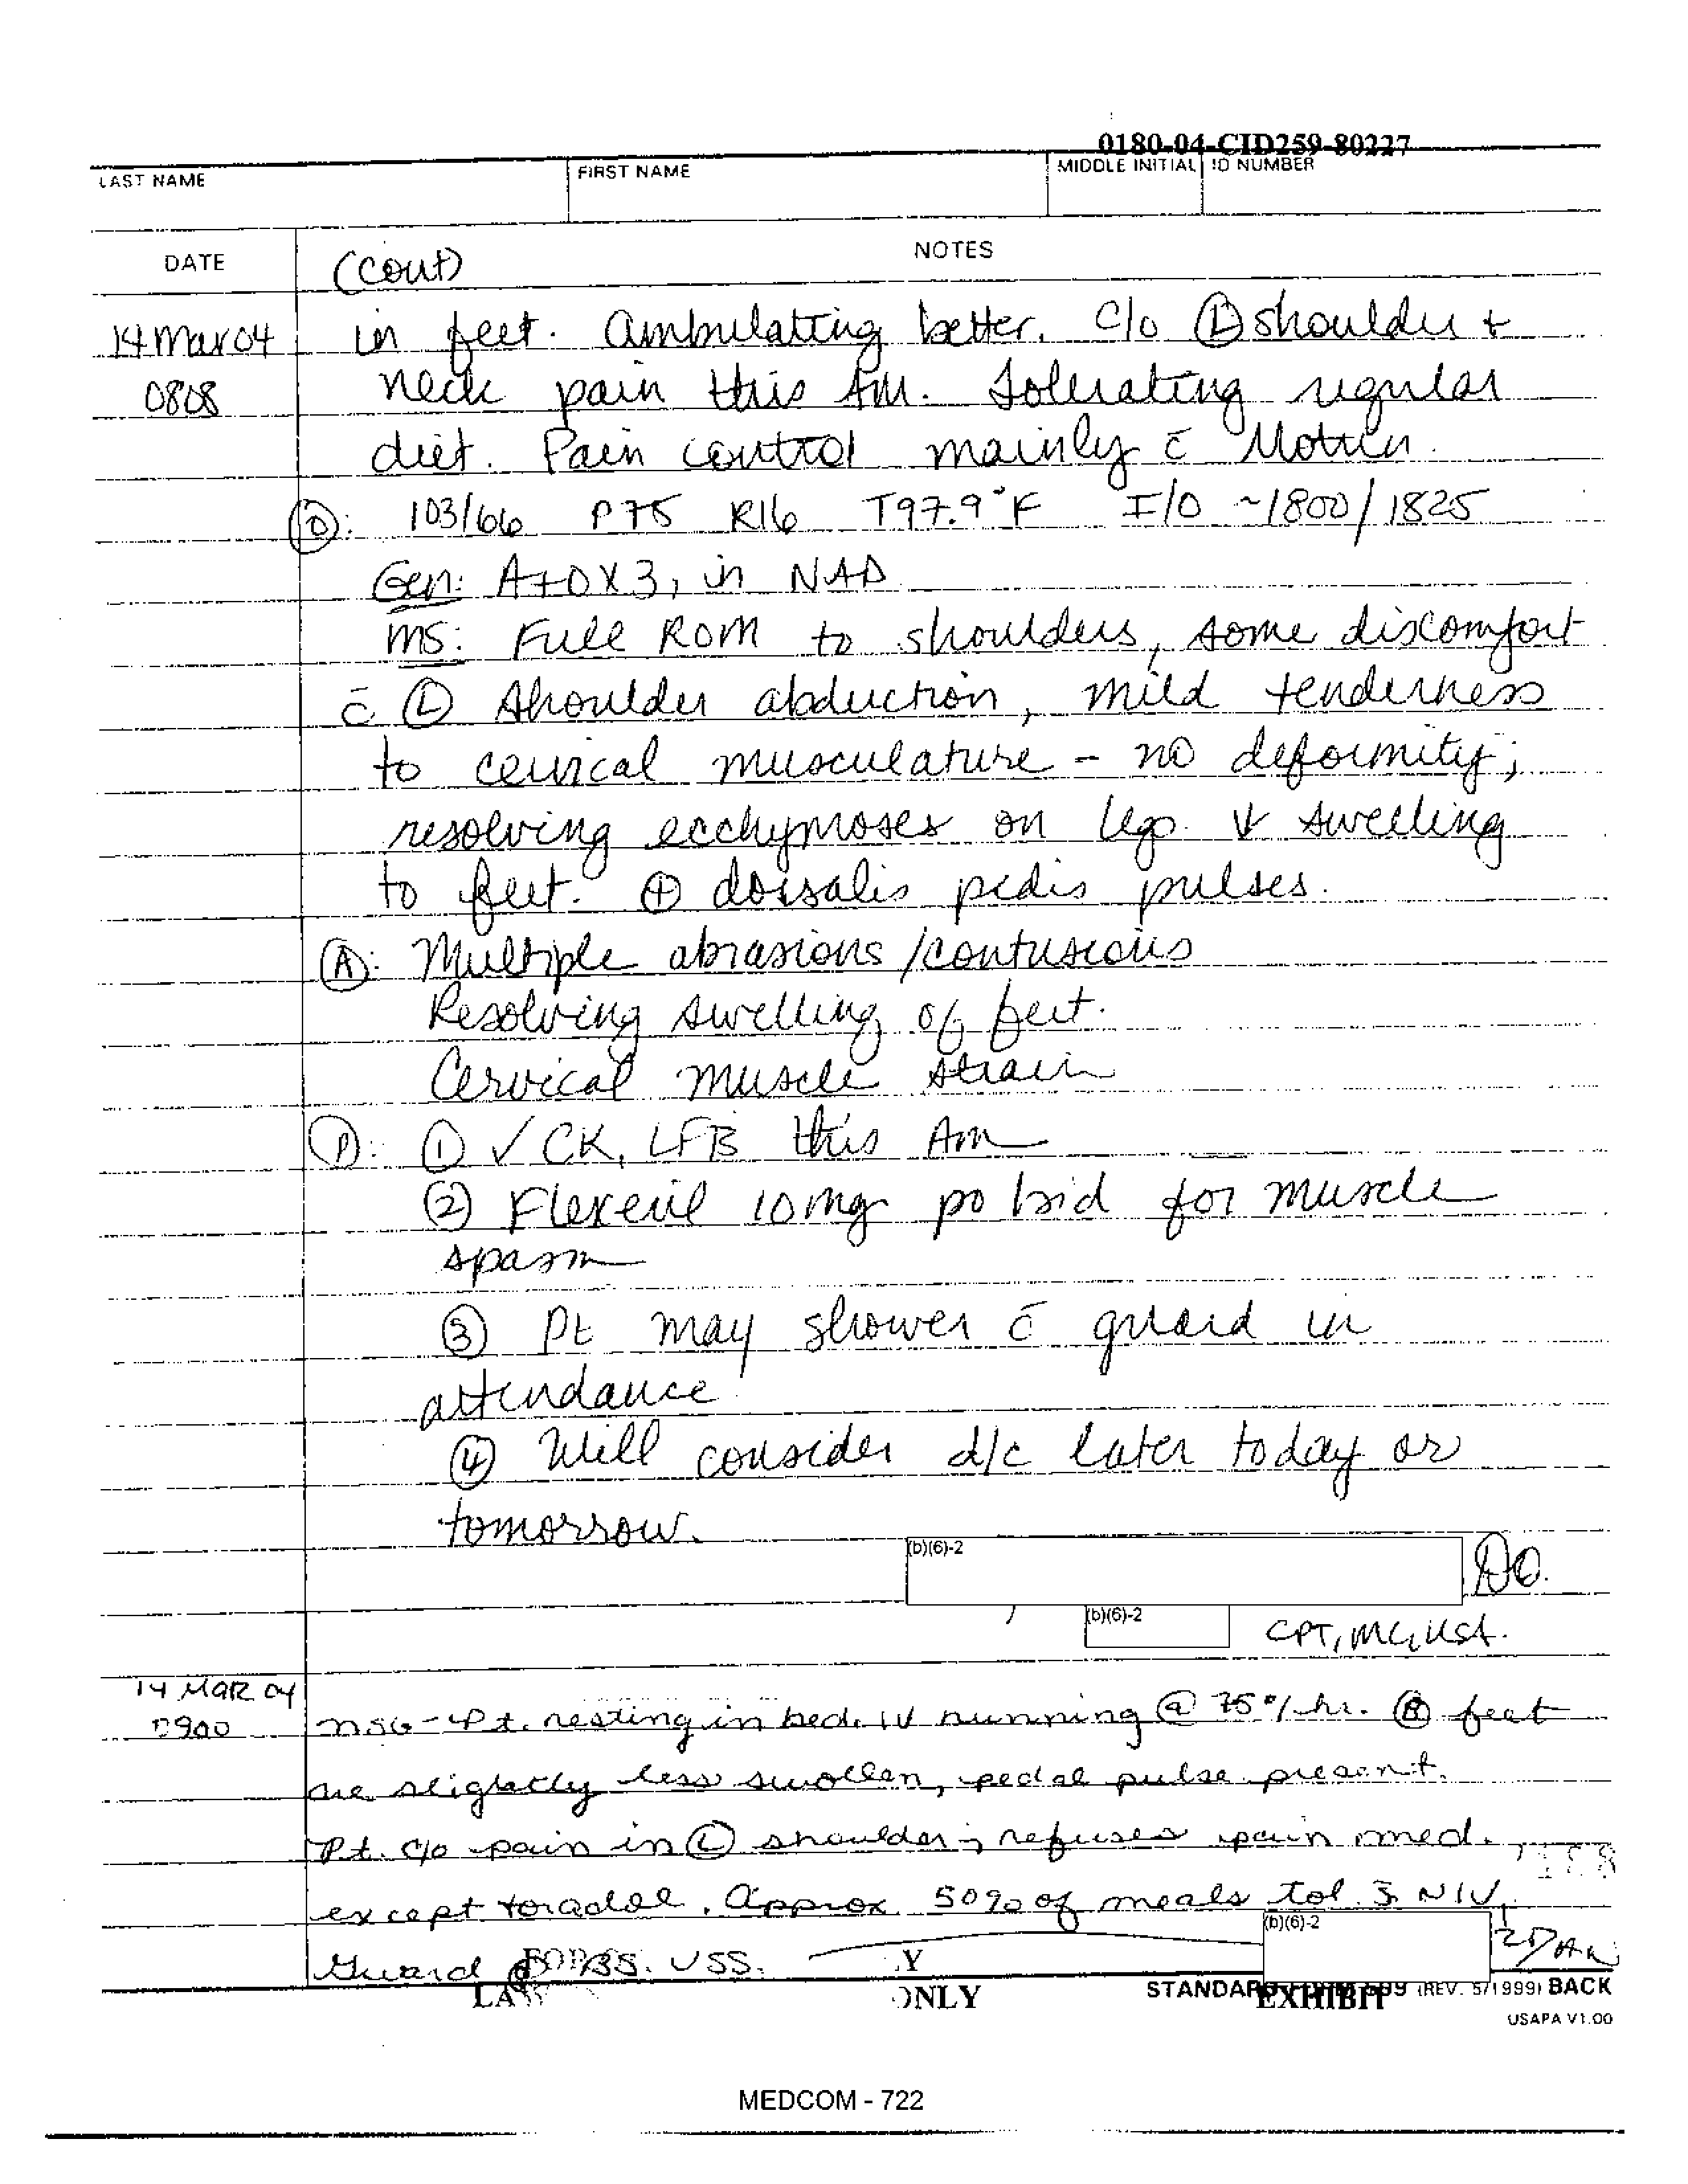 0180-04-CID259-80227
LAST NAME FIRST NAME MIDDLE INITIAL ID NUMBER
DATE NOTES
(cont)
14 Mar 04 in feet. Ambulatting better. c/o Ⓛ shoulder +
0808 neck pain this AM. Tolerating regular
diet. Pain control mainly c̄ Motrin.
Ⓞ: 103/66 P75 R16 T97.9°F I/O ~1800/1825
Gen: A+OX3, in NAD
MS: Full ROM to shoulders, some discomfort
c̄ Ⓛ shoulder abduction, mild tenderness
to cervical musculature - no deformity;
resolving ecchymoses on legs. ↓ swelling
to feet. ⊕ dorsalis pedis pulses.
Ⓐ: Multiple abrasions/contusions
Resolving swelling of feet.
Cervical muscle strain
Ⓟ: ① ✓ CK, LFTs this AM
② Flexeril 10mg po bid for muscle
spasm
③ Pt may shower c̄ guard in
attendance.
④ Will consider d/c later today or
tomorrow.
(b)(6)-2 DO.
(b)(6)-2 CPT, MC, USA.
14 MAR 04
0900 nsg - Pt. resting in bed. IV running @ 75cc/hr. Ⓑ feet
are slightly less swollen, pedal pulse present.
Pt. c/o pain in Ⓛ shoulder; refuses pain med.
except toradol. Approx 50% of meals tol. s̄ N/V.
Guard @ BS. VSS. (b)(6)-2
ONLY STANDARD EXHIBIT (REV. 5/1999) BACK
USAPA V1.00
MEDCOM - 722